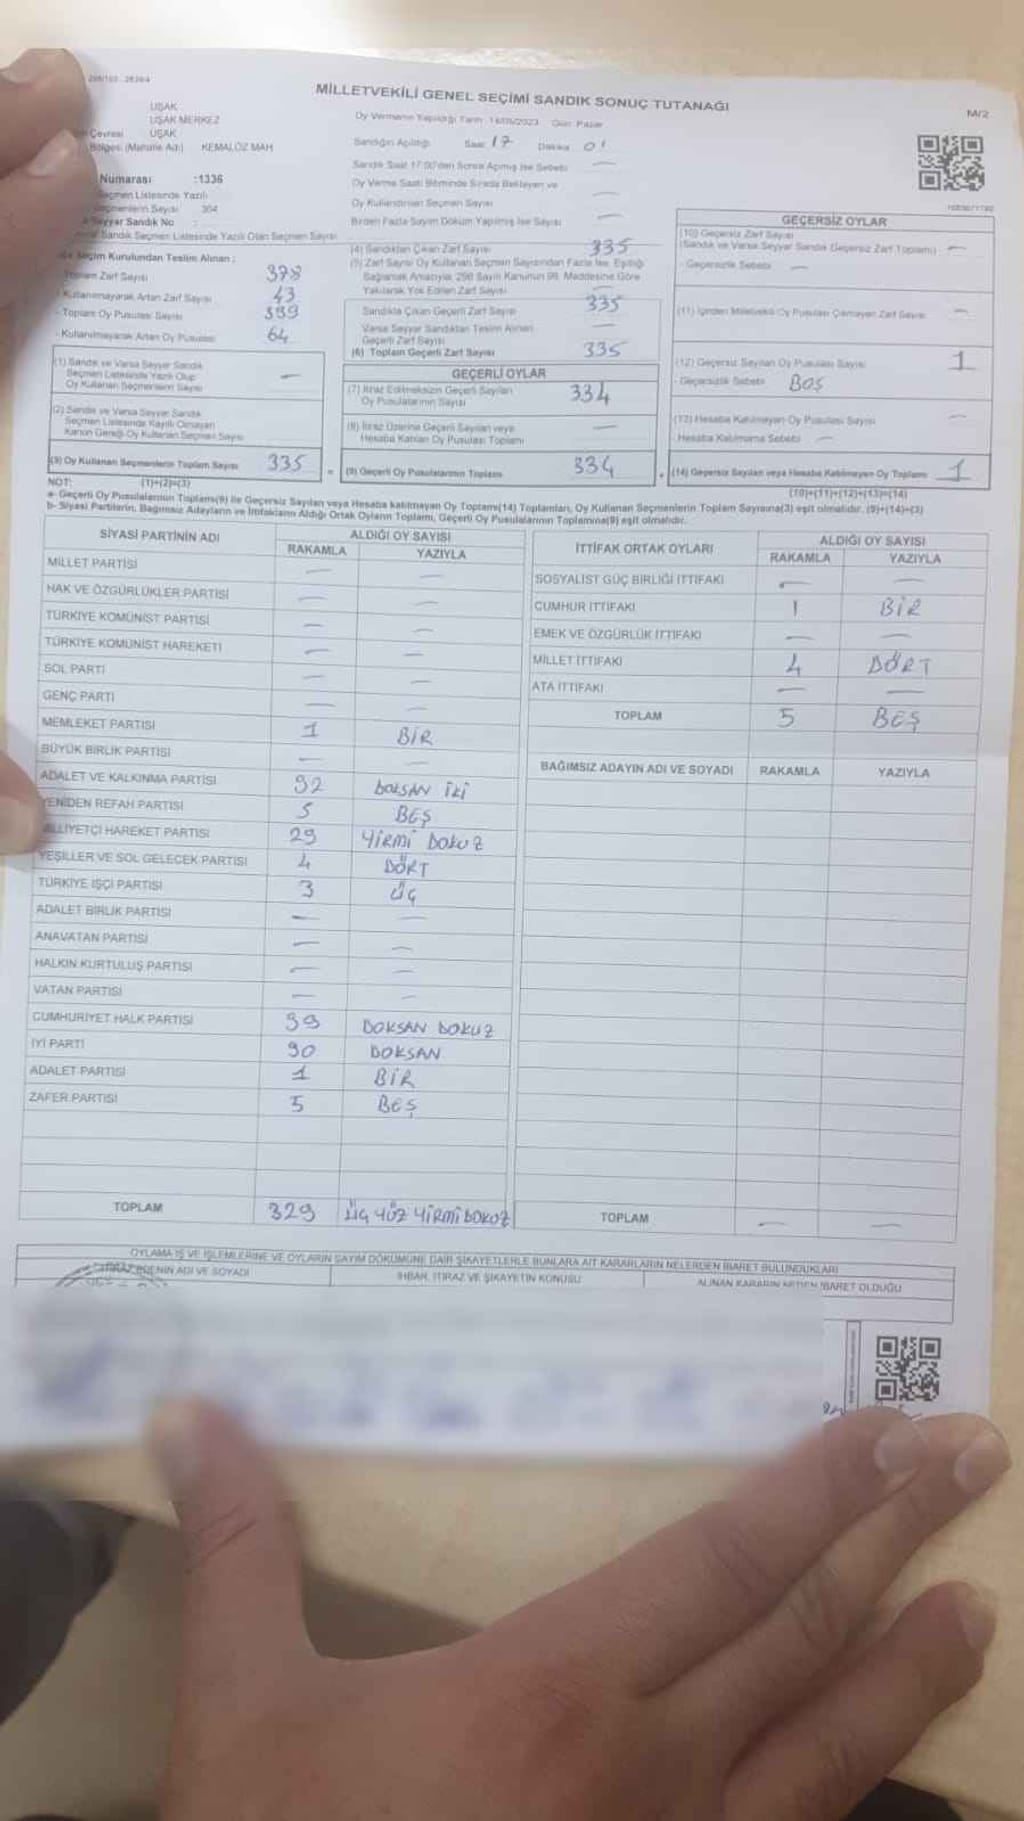 MİLLETVEKİLİ GENEL SEÇİMİ SANDIK SONUÇ TUTANAĞI
M/2
UŞAK
UŞAK MERKEZ
Çevresi UŞAK
Bölgesi (Mahalle Adı) KEMALÖZ MAH
Numarası :1336
Seçmen Listesinde Yazılı
Seçmenlerin Sayısı 304
Seyyar Sandık No :
Sandık Seçmen Listesinde Yazılı Olan Seçmen Sayısı
Seçim Kurulundan Teslim Alınan :
Toplam Zarf Sayısı 378
- Kullanılmayarak Artan Zarf Sayısı 43
- Toplam Oy Pusulası Sayısı 399
- Kullanılmayarak Artan Oy Pusulası 64
(1) Sandık ve Varsa Seyyar Sandık
Seçmen Listesinde Yazılı Olup
Oy Kullanan Seçmenlerin Sayısı —
(2) Sandık ve Varsa Seyyar Sandık
Seçmen Listesinde Kayıtlı Olmayan
Kanun Gereği Oy Kullanan Seçmen Sayısı
(3) Oy Kullanan Seçmenlerin Toplam Sayısı 335
(1)+(2)=(3)
Oy Vermenin Yapıldığı Tarih : 14/05/2023 Gün: Pazar
Sandığın Açıldığı Saat: 17 Dakika: 01
Sandık Saat 17:00'den Sonra Açılmış İse Sebebi —
Oy Verme Saati Bitiminde Sırada Bekleyen ve
Oy Kullandırılan Seçmen Sayısı —
Birden Fazla Sayım Döküm Yapılmış İse Sayısı —
(4) Sandıktan Çıkan Zarf Sayısı 335
(5) Zarf Sayısı Oy Kullanan Seçmen Sayısından Fazla İse, Eşitliği
Sağlamak Amacıyla, 298 Sayılı Kanunun 98. Maddesine Göre
Yakılarak Yok Edilen Zarf Sayısı —
Sandıkta Çıkan Geçerli Zarf Sayısı 335
Varsa Seyyar Sandıktan Teslim Alınan
Geçerli Zarf Sayısı —
(6) Toplam Geçerli Zarf Sayısı 335
GEÇERLİ OYLAR
(7) İtiraz Edilmeksizin Geçerli Sayılan
Oy Pusulalarının Sayısı 334
(8) İtiraz Üzerine Geçerli Sayılan veya
Hesaba Katılan Oy Pusulası Toplamı —
(9) Geçerli Oy Pusulalarının Toplamı 334
GEÇERSİZ OYLAR
(10) Geçersiz Zarf Sayısı
(Sandık ve Varsa Seyyar Sandık Geçersiz Zarf Toplamı) —
- Geçersizlik Sebebi —
(11) İçinden Milletvekili Oy Pusulası Çıkmayan Zarf Sayısı —
(12) Geçersiz Sayılan Oy Pusulası Sayısı 1
- Geçersizlik Sebebi BOŞ
(13) Hesaba Katılmayan Oy Pusulası Sayısı —
Hesaba Katılmama Sebebi —
(14) Geçersiz Sayılan veya Hesaba Katılmayan Oy Toplamı 1
(10)+(11)+(12)+(13)=(14)
NOT:
a- Geçerli Oy Pusulalarının Toplamı(9) ile Geçersiz Sayılan veya Hesaba katılmayan Oy Toplamı(14) Toplamları, Oy Kullanan Seçmenlerin Toplam Sayısına(3) eşit olmalıdır. (9)+(14)=(3)
b- Siyasi Partilerin, Bağımsız Adayların ve İttifakların Aldığı Ortak Oyların Toplamı, Geçerli Oy Pusulalarının Toplamına(9) eşit olmalıdır.
SİYASİ PARTİNİN ADI ALDIĞI OY SAYISI
RAKAMLA YAZIYLA
MİLLET PARTİSİ — —
HAK VE ÖZGÜRLÜKLER PARTİSİ — —
TÜRKİYE KOMÜNİST PARTİSİ — —
TÜRKİYE KOMÜNİST HAREKETİ — —
SOL PARTİ — —
GENÇ PARTİ — —
MEMLEKET PARTİSİ 1 BİR
BÜYÜK BİRLİK PARTİSİ — —
ADALET VE KALKINMA PARTİSİ 92 DOKSAN İKİ
YENİDEN REFAH PARTİSİ 5 BEŞ
MİLLİYETÇİ HAREKET PARTİSİ 29 YİRMİ DOKUZ
YEŞİLLER VE SOL GELECEK PARTİSİ 4 DÖRT
TÜRKİYE İŞÇİ PARTİSİ 3 ÜÇ
ADALET BİRLİK PARTİSİ — —
ANAVATAN PARTİSİ — —
HALKIN KURTULUŞ PARTİSİ — —
VATAN PARTİSİ — —
CUMHURİYET HALK PARTİSİ 99 DOKSAN DOKUZ
İYİ PARTİ 90 DOKSAN
ADALET PARTİSİ 1 BİR
ZAFER PARTİSİ 5 BEŞ
TOPLAM 329 ÜÇ YÜZ YİRMİ DOKUZ
İTTİFAK ORTAK OYLARI ALDIĞI OY SAYISI
RAKAMLA YAZIYLA
SOSYALİST GÜÇ BİRLİĞİ İTTİFAKI — —
CUMHUR İTTİFAKI 1 BİR
EMEK VE ÖZGÜRLÜK İTTİFAKI — —
MİLLET İTTİFAKI 4 DÖRT
ATA İTTİFAKI — —
TOPLAM 5 BEŞ
BAĞIMSIZ ADAYIN ADI VE SOYADI RAKAMLA YAZIYLA
TOPLAM — —
OYLAMA İŞ VE İŞLEMLERİNE VE OYLARIN SAYIM DÖKÜMÜNE DAİR ŞİKAYETLERLE BUNLARA AİT KARARLARIN NELERDEN İBARET BULUNDUKLARI
ADI VE SOYADI
İHBAR, İTİRAZ VE ŞİKAYETİN KONUSU
ALINAN KARARIN NEDEN İBARET OLDUĞU